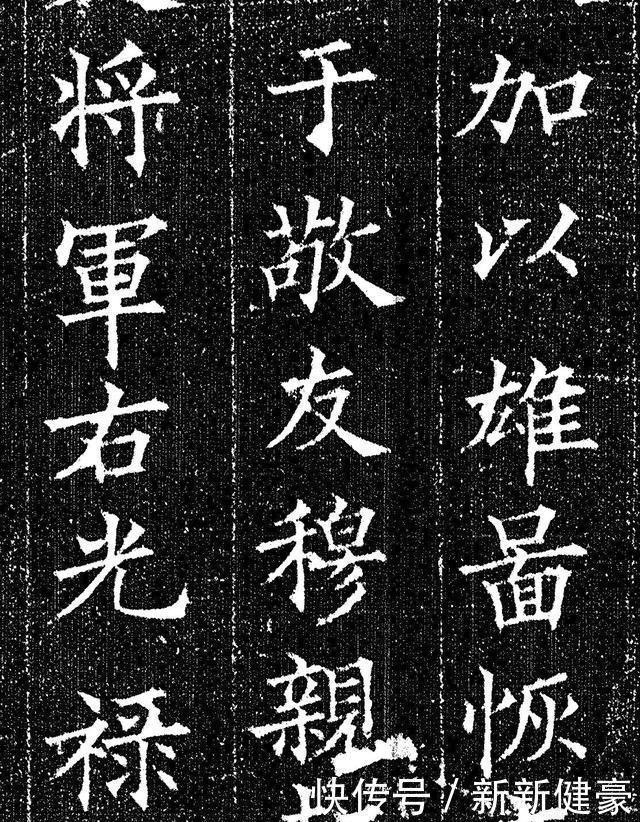 加以雄啚恢
于敬友穆親
将軍右光禄
快传号/新新健豪